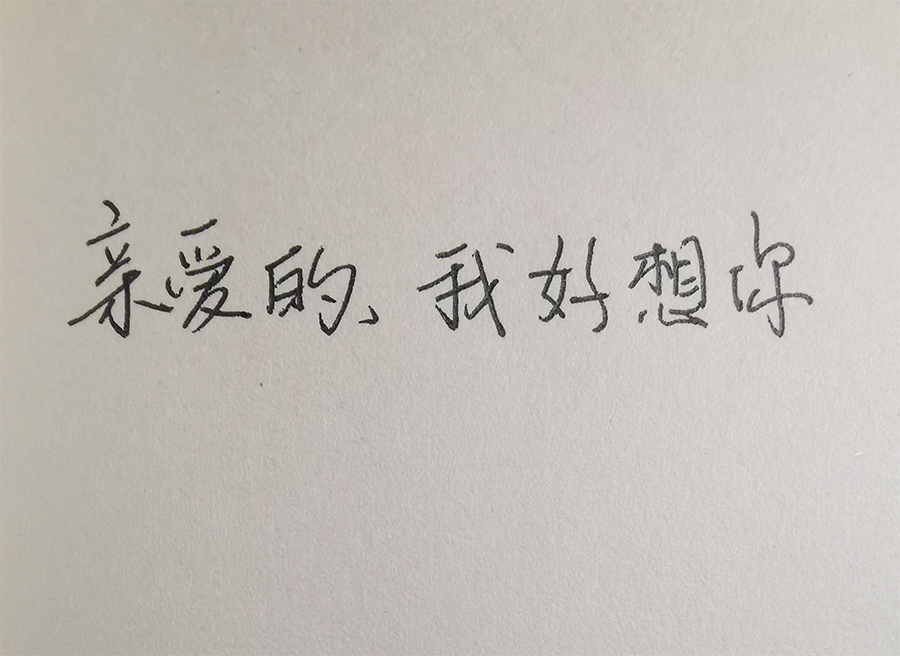 亲爱的、我好想你